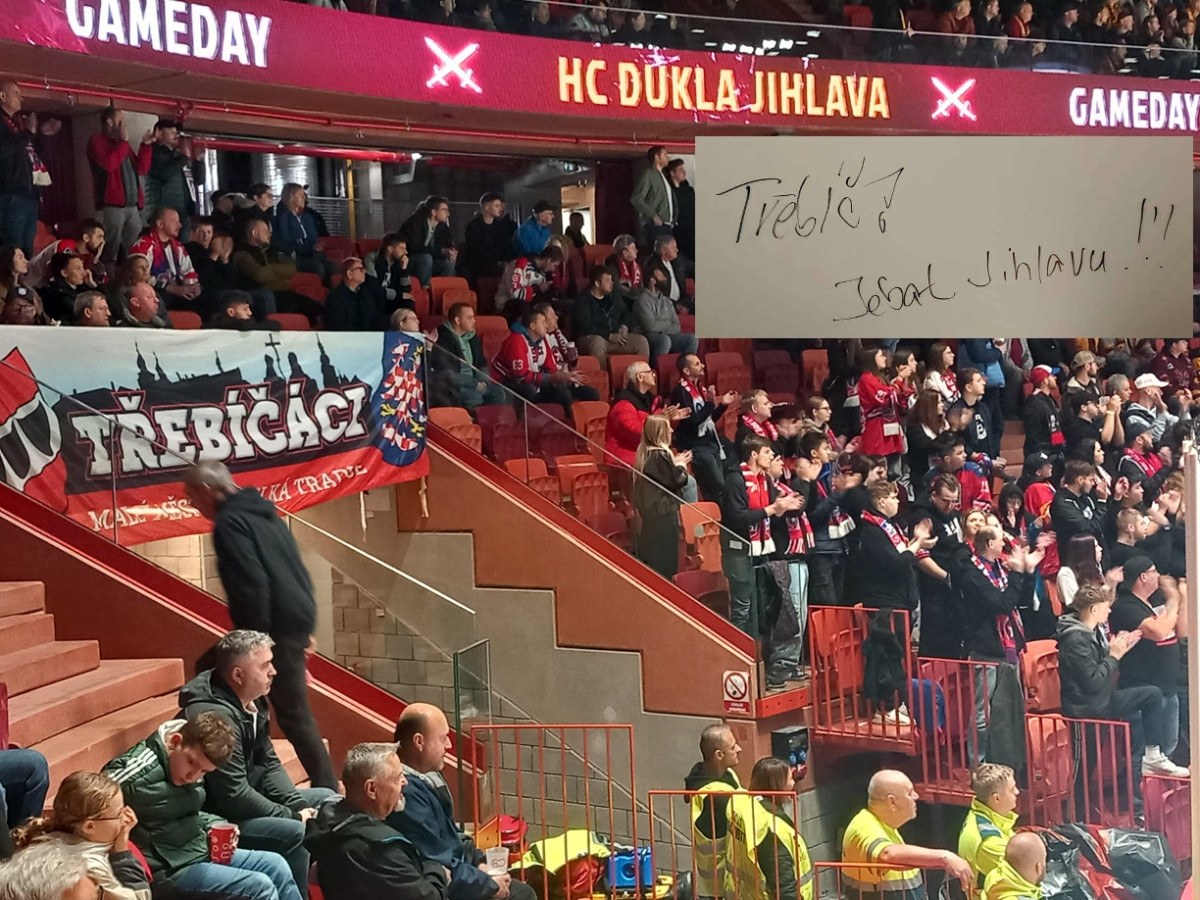 GAMEDAY HC DUKLA JIHLAVA GAMEDAY
Třebíč!
Jebat Jihlavu!!!
TŘEBÍČÁCI
63